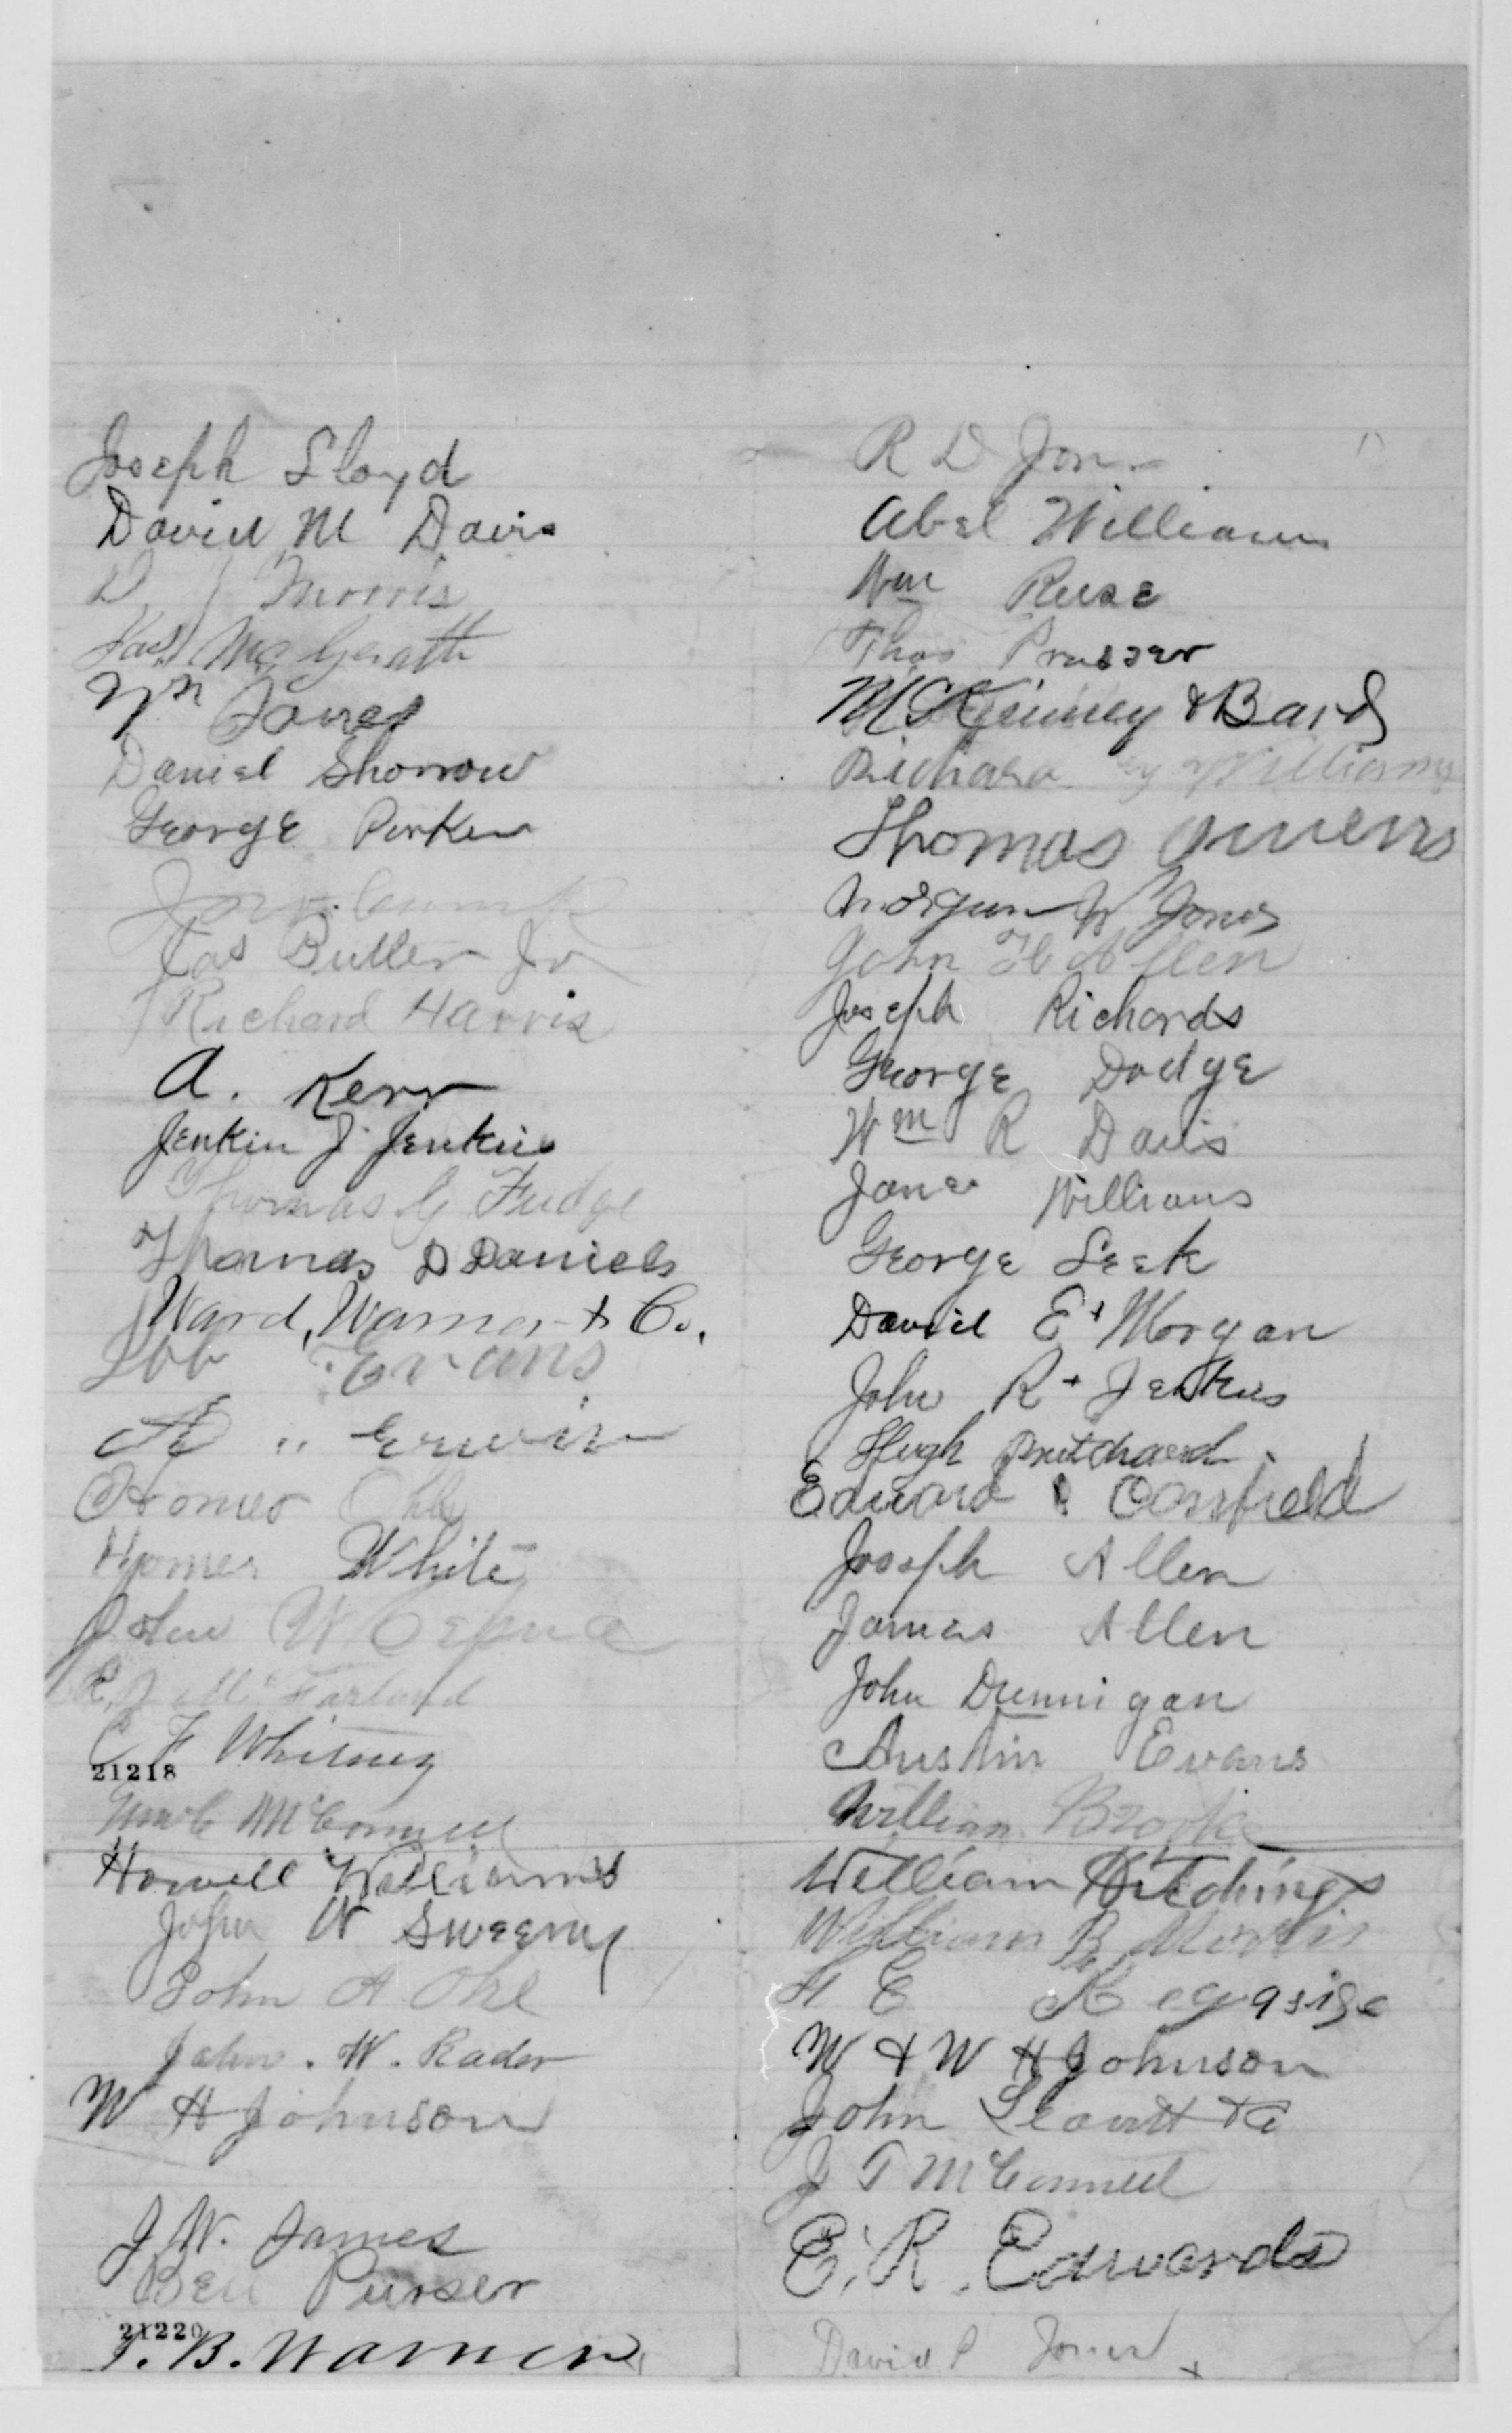 Joseph Lloyd
David M Davis
D J Morris
Jas McGrath
Wm James
Daniel Shorrow
George Parker
Jas Butler Jr
Richard Harris
A. Kerr
Jenkin J Jenkins
Thomas G Fudge
Thomas D Daniels
Ward, Warner & Co.
Evans
Erwin
Homer
Homer White
John W
R. J McFarland
C F Whitney
21218
McConnell
Howell Williams
John W Sweeny
John A Ohl
John. W. Rader
W H Johnson
J. W. James
Ben Purser
21220
T. B. Warner
R D Jones
Abel Williams
Wm Reese
Thos Prosser
McKinney & Bard
Richard Williams
Thomas Owens
Morgan W Jones
John H Allen
Joseph Richards
George Dodge
Wm R Davis
James Williams
George Leek
David E + Morgan
John R + Jenkins
Hugh Pritchard
Edward Confield
Joseph Allen
James Allen
John Dunnigan
Austin Evans
William Brooke
William Hitchings
William B Morris
H E
W & W H Johnson
John Leavitt & Co
J T McConnell
E. R. Edwards
David P Jones